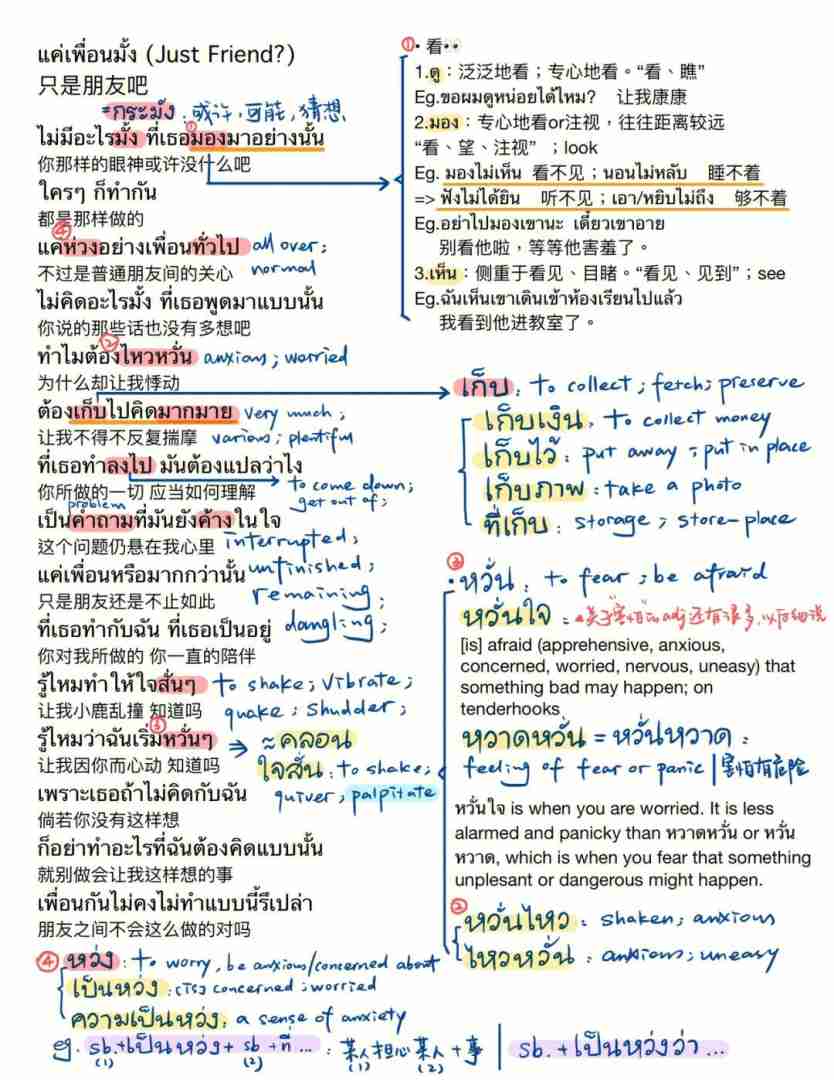 แค่เพื่อนมั้ง (Just Friend?)
只是朋友吧
=กระมัง: 或许，可能，猜想
ไม่มีอะไรมั้ง ที่เธอมองมาอย่างนั้น
你那样的眼神或许没什么吧
ใครๆ ก็ทำกัน
都是那样做的
④
แค่ห่วงอย่างเพื่อนทั่วไป all over;
不过是普通朋友间的关心 normal
ไม่คิดอะไรมั้ง ที่เธอพูดมาแบบนั้น
你说的那些话也没有多想吧
②
ทำไมต้องไหวหวั่น anxious; worried
为什么却让我悸动
ต้องเก็บไปคิดมากมาย very much;
让我不得不反复揣摩 various; plentiful
ที่เธอทำลงไป มันต้องแปลว่าไง
你所做的一切 应当如何理解 to come down;
get out of;
problem
เป็นคำถามที่มันยังค้างในใจ
这个问题仍悬在我心里 interrupted;
แค่เพื่อนหรือมากกว่านั้น unfinished;
只是朋友还是不止如此 remaining;
ที่เธอทำกับฉัน ที่เธอเป็นอยู่ dangling;
你对我所做的 你一直的陪伴
รู้ไหมทำให้ใจสั่นๆ to shake; vibrate;
让我小鹿乱撞 知道吗 quake; shudder;
③
รู้ไหมว่าฉันเริ่มหวั่นๆ ⇒ ≈คลอน
让我因你而心动 知道吗 ใจสั่น: to shake;
เพราะเธอถ้าไม่คิดกับฉัน quiver; palpitate
倘若你没有这样想
ก็อย่าทำอะไรที่ฉันต้องคิดแบบนั้น
就别做会让我这样想的事
เพื่อนกันไม่คงไม่ทำแบบนี้รึเปล่า
朋友之间不会这么做的对吗
① • 看··
1.ดู：泛泛地看；专心地看。“看、瞧”
Eg.ขอผมดูหน่อยได้ไหม? 让我康康
2.มอง：专心地看or注视，往往距离较远
“看、望、注视” ；look
Eg. มองไม่เห็น 看不见；นอนไม่หลับ 睡不着
=> ฟังไม่ได้ยิน 听不见；เอา/หยิบไม่ถึง 够不着
Eg.อย่าไปมองเขานะ เดี๋ยวเขาอาย
别看他啦，等等他害羞了。
3.เห็น：侧重于看见、目睹。“看见、见到”；see
Eg.ฉันเห็นเขาเดินเข้าห้องเรียนไปแล้ว
我看到他进教室了。
เก็บ: to collect; fetch; preserve
เก็บเงิน: to collect money
เก็บไว้: put away; put in place
เก็บภาพ: take a photo
ที่เก็บ: storage; store-place
③
• หวั่น: to fear; be afraid
หวั่นใจ: *关于“害怕”的adj还有很多，以后细说
[is] afraid (apprehensive, anxious,
concerned, worried, nervous, uneasy) that
something bad may happen; on
tenderhooks
หวาดหวั่น = หวั่นหวาด:
feeling of fear or panic | 害怕有危险
หวั่นใจ is when you are worried. It is less
alarmed and panicky than หวาดหวั่น or หวั่น
หวาด, which is when you fear that something
unplesant or dangerous might happen.
②
หวั่นไหว: shaken; anxious
ไหวหวั่น: anxious; uneasy
④ หว่ง: to worry, be anxious/concerned about
เป็นหว่ง: (is) concerned; worried
ความเป็นหว่ง: a sense of anxiety
eg. sb.+เป็นหว่ง+ sb +ที่ ... : 某人担心某人+事 | sb. +เป็นหว่งว่า ...
(1) (2) (1) (2)